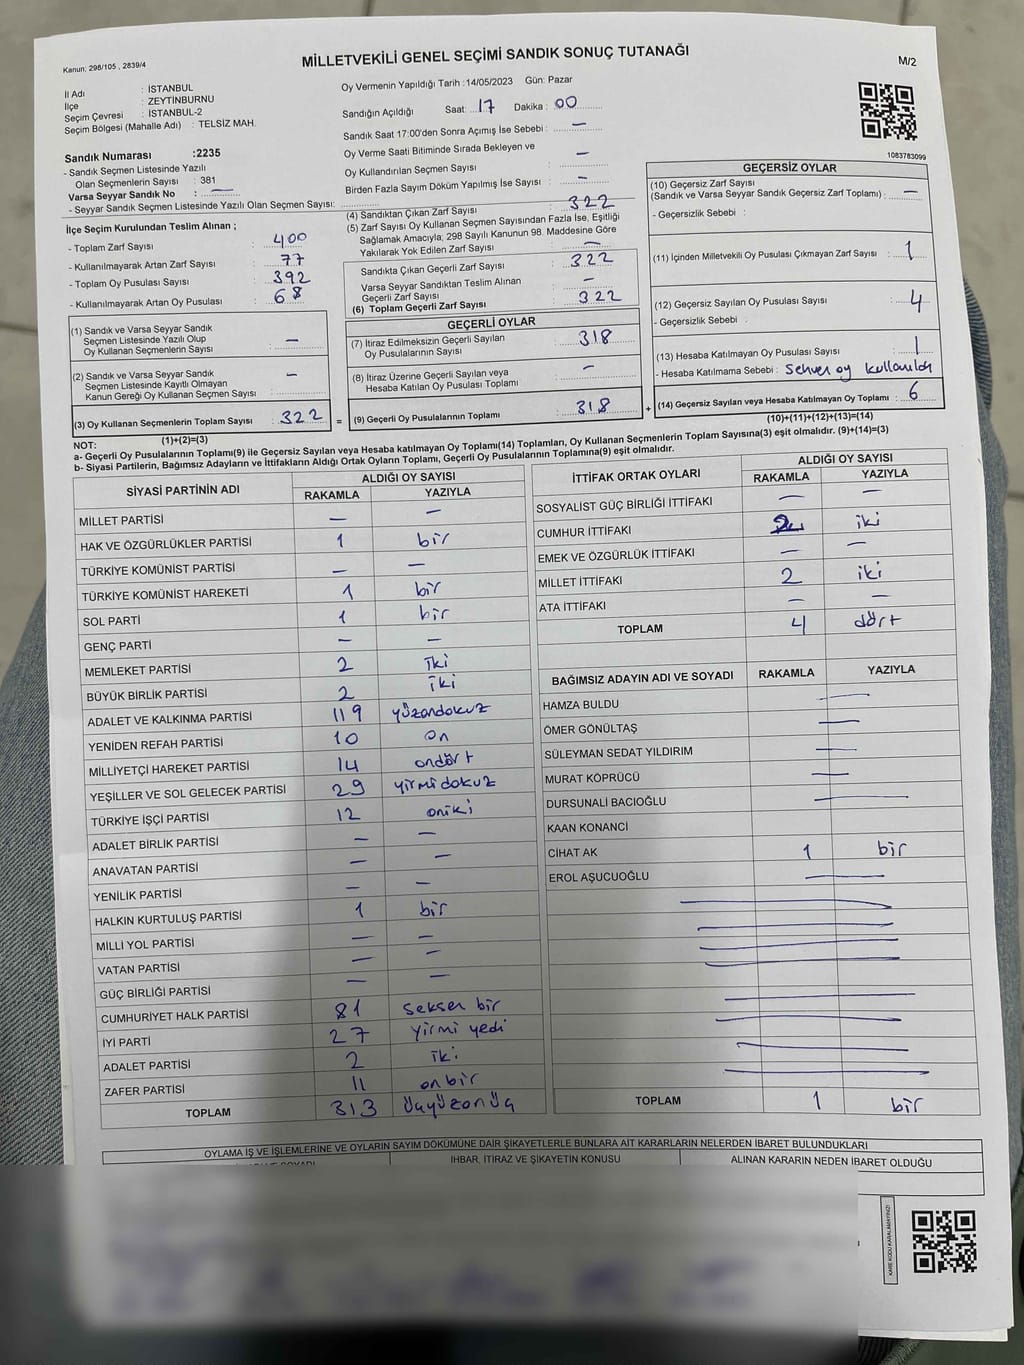 Kanun: 298/105 , 2839/4
MİLLETVEKİLİ GENEL SEÇİMİ SANDIK SONUÇ TUTANAĞI
M/2
İl Adı : İSTANBUL
İlçe : ZEYTİNBURNU
Seçim Çevresi : İSTANBUL-2
Seçim Bölgesi (Mahalle Adı) : TELSİZ MAH.
Sandık Numarası :2235
- Sandık Seçmen Listesinde Yazılı
Olan Seçmenlerin Sayısı : 381
Varsa Seyyar Sandık No : —
- Seyyar Sandık Seçmen Listesinde Yazılı Olan Seçmen Sayısı:
Oy Vermenin Yapıldığı Tarih :14/05/2023 Gün: Pazar
Sandığın Açıldığı Saat: 17 Dakika : 00
Sandık Saat 17:00'den Sonra Açımış İse Sebebi : —
Oy Verme Saati Bitiminde Sırada Bekleyen ve
Oy Kullandırılan Seçmen Sayısı : —
Birden Fazla Sayım Döküm Yapılmış İse Sayısı : —
1083783099
İlçe Seçim Kurulundan Teslim Alınan ;
- Toplam Zarf Sayısı : 400
- Kullanılmayarak Artan Zarf Sayısı : 77
- Toplam Oy Pusulası Sayısı : 392
- Kullanılmayarak Artan Oy Pusulası : 68
(1) Sandık ve Varsa Seyyar Sandık
Seçmen Listesinde Yazılı Olup
Oy Kullanan Seçmenlerin Sayısı : —
(2) Sandık ve Varsa Seyyar Sandık
Seçmen Listesinde Kayıtlı Olmayan
Kanun Gereği Oy Kullanan Seçmen Sayısı : —
(3) Oy Kullanan Seçmenlerin Toplam Sayısı : 322
(1)+(2)=(3)
(4) Sandıktan Çıkan Zarf Sayısı : 322
(5) Zarf Sayısı Oy Kullanan Seçmen Sayısından Fazla İse, Eşitliği
Sağlamak Amacıyla, 298 Sayılı Kanunun 98. Maddesine Göre
Yakılarak Yok Edilen Zarf Sayısı : —
Sandıkta Çıkan Geçerli Zarf Sayısı : 322
Varsa Seyyar Sandıktan Teslim Alınan
Geçerli Zarf Sayısı : —
(6) Toplam Geçerli Zarf Sayısı : 322
GEÇERLİ OYLAR
(7) İtiraz Edilmeksizin Geçerli Sayılan
Oy Pusulalarının Sayısı : 318
(8) İtiraz Üzerine Geçerli Sayılan veya
Hesaba Katılan Oy Pusulası Toplamı : —
= (9) Geçerli Oy Pusulalarının Toplamı : 318
GEÇERSİZ OYLAR
(10) Geçersiz Zarf Sayısı
(Sandık ve Varsa Seyyar Sandık Geçersiz Zarf Toplamı) : —
- Geçersizlik Sebebi :
(11) İçinden Milletvekili Oy Pusulası Çıkmayan Zarf Sayısı : 1
(12) Geçersiz Sayılan Oy Pusulası Sayısı : 4
- Geçersizlik Sebebi :
(13) Hesaba Katılmayan Oy Pusulası Sayısı : 1
- Hesaba Katılmama Sebebi : Sehven oy kullanıldı
+ (14) Geçersiz Sayılan veya Hesaba Katılmayan Oy Toplamı : 6
(10)+(11)+(12)+(13)=(14)
NOT:
a- Geçerli Oy Pusulalarının Toplamı(9) ile Geçersiz Sayılan veya Hesaba katılmayan Oy Toplamı(14) Toplamları, Oy Kullanan Seçmenlerin Toplam Sayısına(3) eşit olmalıdır. (9)+(14)=(3)
b- Siyasi Partilerin, Bağımsız Adayların ve İttifakların Aldığı Ortak Oyların Toplamı, Geçerli Oy Pusulalarının Toplamına(9) eşit olmalıdır.
SİYASİ PARTİNİN ADI ALDIĞI OY SAYISI
RAKAMLA YAZIYLA
MİLLET PARTİSİ — —
HAK VE ÖZGÜRLÜKLER PARTİSİ 1 bir
TÜRKİYE KOMÜNİST PARTİSİ — —
TÜRKİYE KOMÜNİST HAREKETİ 1 bir
SOL PARTİ 1 bir
GENÇ PARTİ — —
MEMLEKET PARTİSİ 2 iki
BÜYÜK BİRLİK PARTİSİ 2 iki
ADALET VE KALKINMA PARTİSİ 119 yüzondokuz
YENİDEN REFAH PARTİSİ 10 on
MİLLİYETÇİ HAREKET PARTİSİ 14 ondört
YEŞİLLER VE SOL GELECEK PARTİSİ 29 yirmidokuz
TÜRKİYE İŞÇİ PARTİSİ 12 oniki
ADALET BİRLİK PARTİSİ — —
ANAVATAN PARTİSİ — —
YENİLİK PARTİSİ — —
HALKIN KURTULUŞ PARTİSİ 1 bir
MİLLİ YOL PARTİSİ — —
VATAN PARTİSİ — —
GÜÇ BİRLİĞİ PARTİSİ — —
CUMHURİYET HALK PARTİSİ 81 seksen bir
İYİ PARTİ 27 yirmi yedi
ADALET PARTİSİ 2 iki
ZAFER PARTİSİ 11 onbir
TOPLAM 313 üçyüzonüç
İTTİFAK ORTAK OYLARI ALDIĞI OY SAYISI
RAKAMLA YAZIYLA
SOSYALİST GÜÇ BİRLİĞİ İTTİFAKI — —
CUMHUR İTTİFAKI 2 iki
EMEK VE ÖZGÜRLÜK İTTİFAKI — —
MİLLET İTTİFAKI 2 iki
ATA İTTİFAKI — —
TOPLAM 4 dört
BAĞIMSIZ ADAYIN ADI VE SOYADI RAKAMLA YAZIYLA
HAMZA BULDU —
ÖMER GÖNÜLTAŞ —
SÜLEYMAN SEDAT YILDIRIM —
MURAT KÖPRÜCÜ —
DURSUNALİ BACIOĞLU —
KAAN KONANCİ
CİHAT AK 1 bir
EROL AŞUCUOĞLU —
TOPLAM 1 bir
OYLAMA İŞ VE İŞLEMLERİNE VE OYLARIN SAYIM DÖKÜMÜNE DAİR ŞİKAYETLERLE BUNLARA AİT KARARLARIN NELERDEN İBARET BULUNDUKLARI
IHBAR, İTİRAZ VE ŞİKAYETİN KONUSU ALINAN KARARIN NEDEN İBARET OLDUĞU